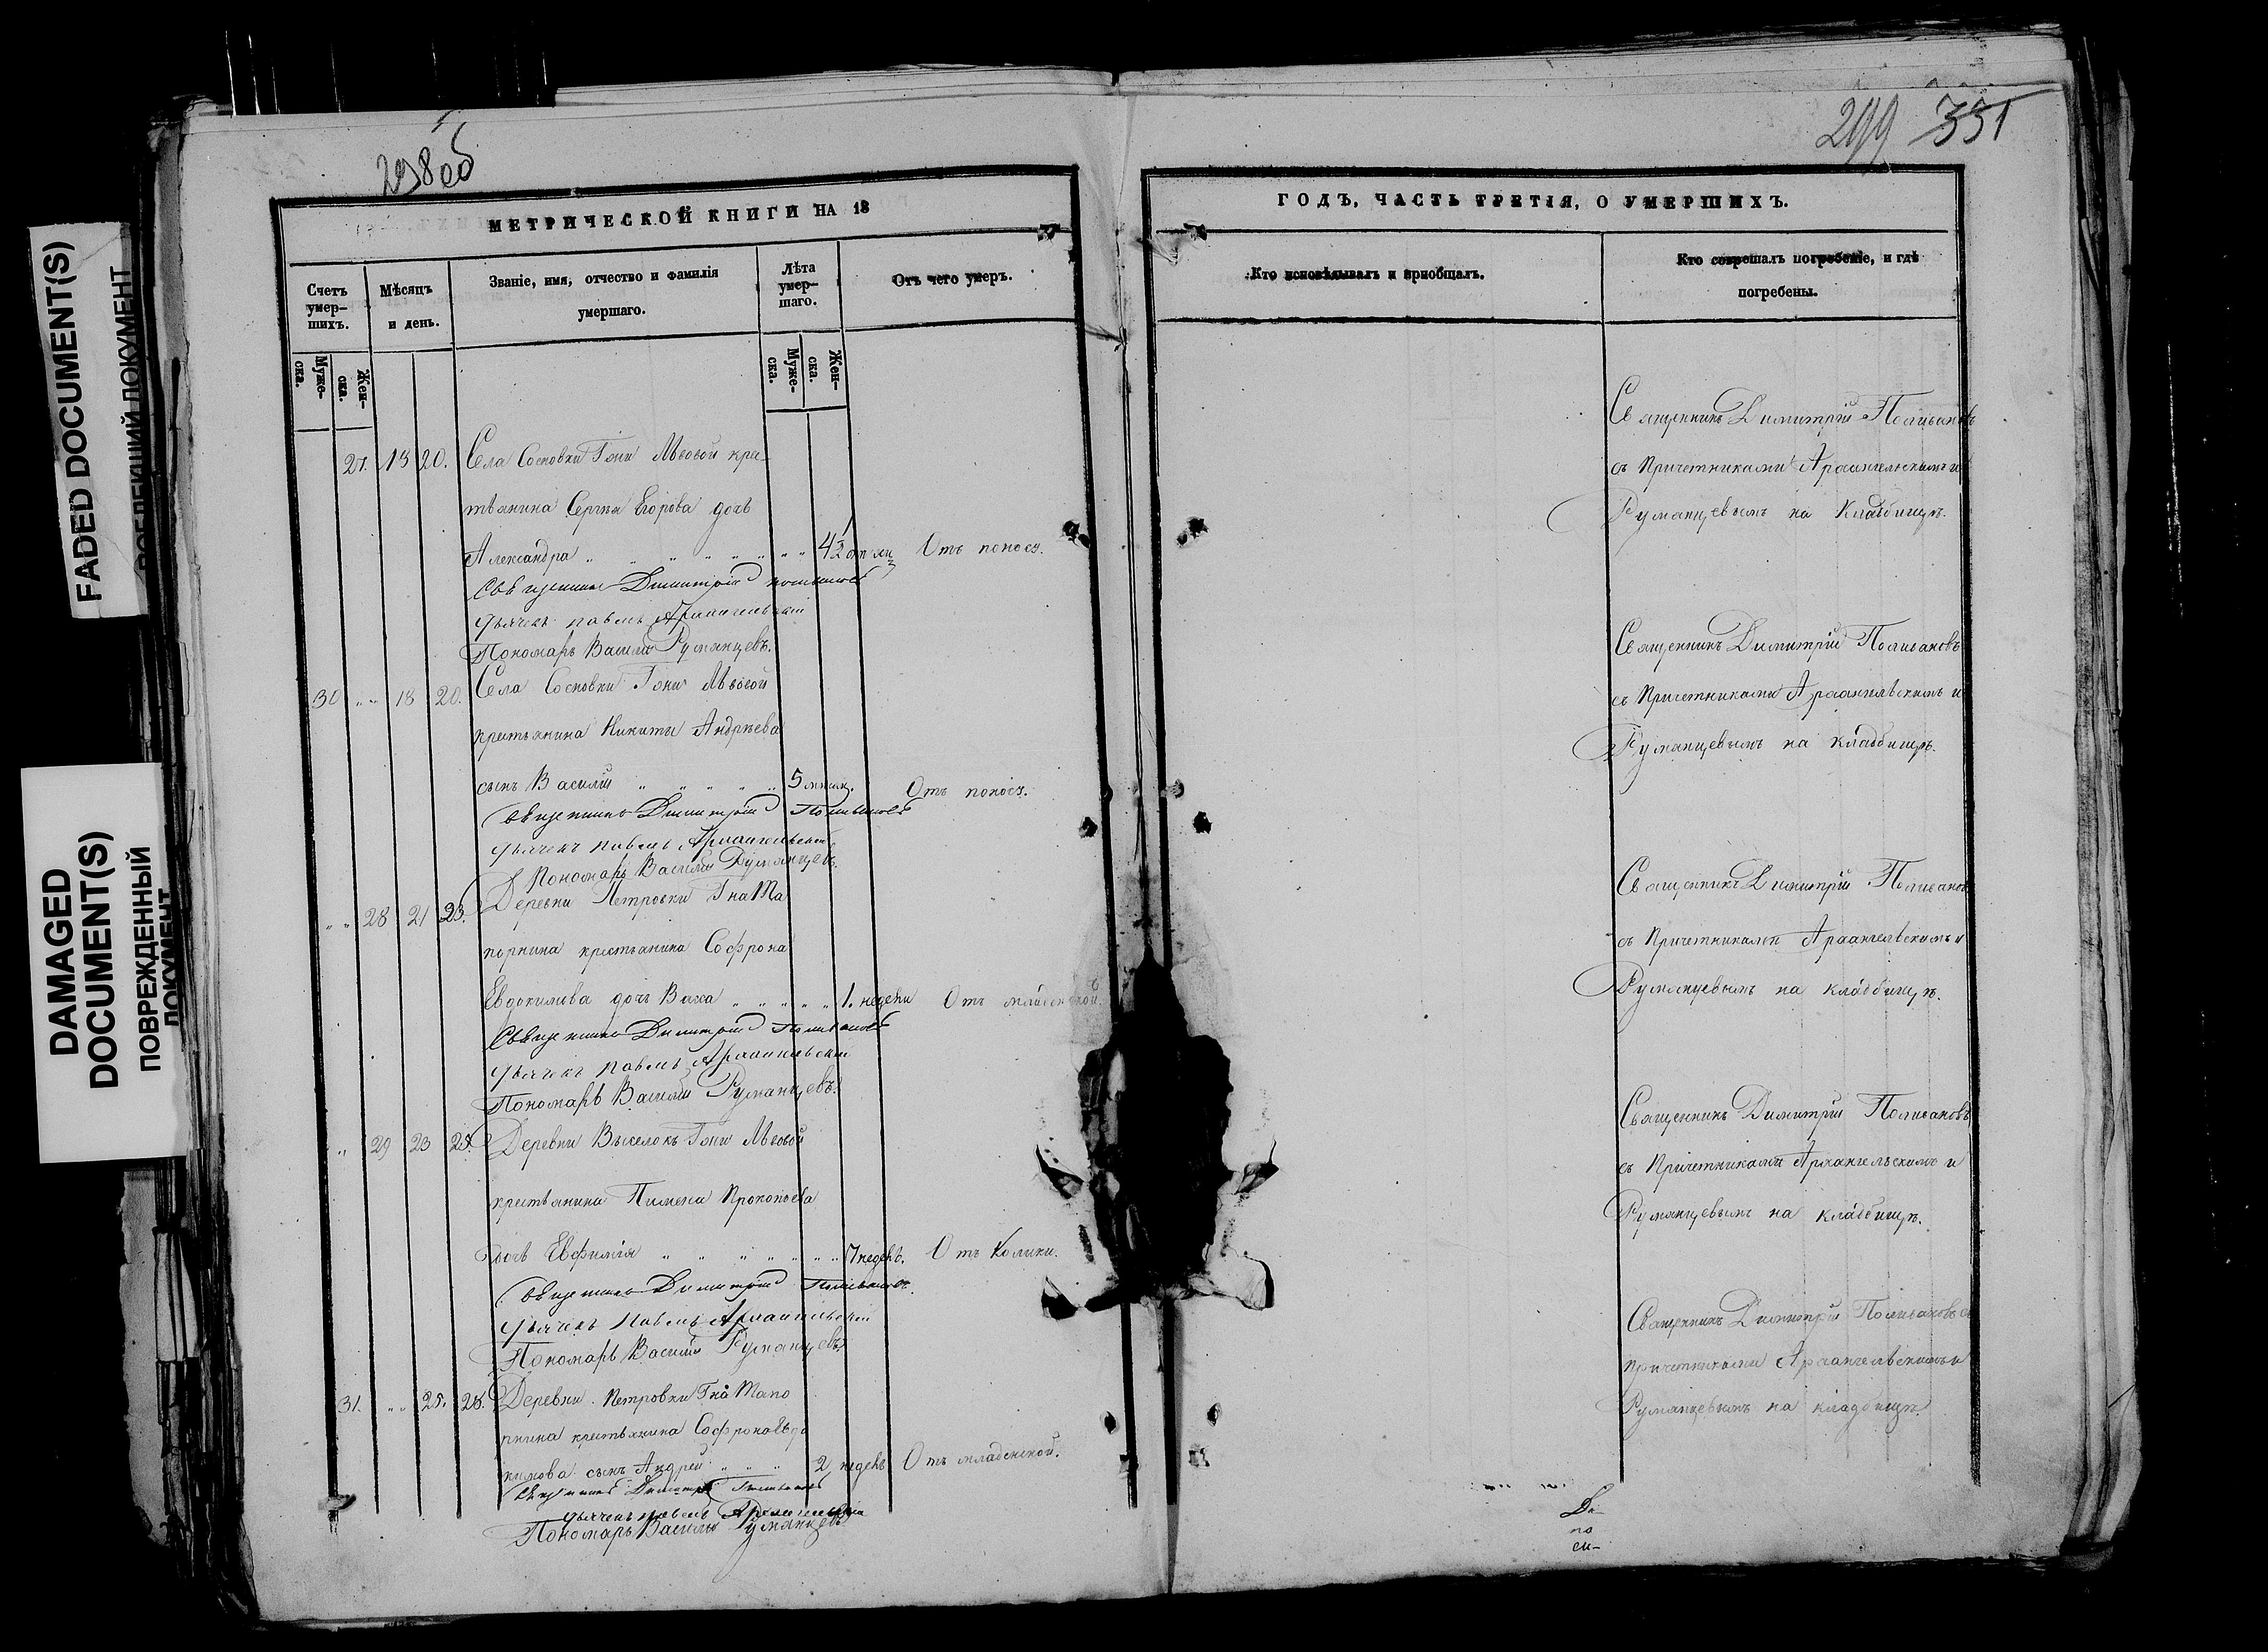 FADED DOCUMENT(S)
DAMAGED
DOCUMENT(S)
ПОВРЕЖДЕННЫЙ
ДОКУМЕНТ
298об
МЕТРИЧЕСКОЙ КНИГИ НА 18
Счетъ умер-шихъ.
Мѣсяцъ и день.
Званіе, имя, отчество и фамилія
умершаго.
Лѣта умер-шаго.
Отъ чего умеръ.
Муже-ска.
Жен-ска.
Муже-ска.
Жен-ска.
27. 18 20. Села Сосновки Гжи Львовой кре-
стьянина Сергѣя Егорова дочь
Александра „ „ „ „ „ „ „ 4½ Отъ поноса.
Священникъ Димитрій Поливановъ
Дьячекъ Павелъ Архангельскій
Пономарь Василій Румянцевъ.
30 „ „ 18 20. Села Сосновки Гжи Львовой
крестьянина Никиты Андрѣева
сынъ Василій „ „ „ „ „ 5 мѣсяц. Отъ поноса.
Священникъ Димитрій Поливановъ
Дьячекъ Павелъ Архангельскій
Пономарь Василій Румянцевъ.
„ „ 28 21 23. Деревни Петровки Гна Та
порнина крестьянина Софрона
Евдокимова дочь Васса „ „ „ „ „ 1. недѣли Отъ младенской.
Священникъ Димитрій Поливановъ
Дьячекъ Павелъ Архангельскій
Пономарь Василій Румянцевъ.
„ 29 23 25. Деревни Выселокъ Гжи Львовой
крестьянина Пимена Прокопьева
дочь Евфимія „ „ „ „ „ „ „ 7 недѣль. Отъ Колики.
Священникъ Димитрій Поливановъ.
Дьячекъ Павелъ Архангельскій
Пономарь Василій Румянцевъ
31. „ „ 25. 26. Деревни Петровки Гна Тапо
рнина крестьянина Софрона Евдо
кимова сынъ Андрей „ „ „ 2 недѣль Отъ младенской.
Священникъ Димитрій Поливановъ
Дьячекъ Павелъ Архангельскій
Пономарь Василій Румянцевъ
299 351
ГОДЪ, ЧАСТЬ ТРЕТІЯ, О УМЕРШИХЪ.
Кто исповѣдывалъ и пріобщалъ.
Кто совершалъ погребеніе, и гдѣ
погребены.
Священникъ Димитрій Поливановъ
съ Причетниками Архангельскимъ и
Румянцевымъ на Кладбищѣ.
Священникъ Димитрій Поливановъ
съ Причетниками Архангельскимъ и
Румянцевымъ на кладбищѣ.
Священникъ Димитрій Поливановъ
съ Причетниками Архангельскимъ и
Румянцевымъ на кладбищѣ.
Священникъ Димитрій Поливановъ
съ Причетниками Архангельскимъ и
Румянцевымъ на кладбищѣ.
Священникъ Димитрій Поливановъ съ
причетниками Архангельскимъ и
Румянцевымъ на кладбищѣ.
по
си-